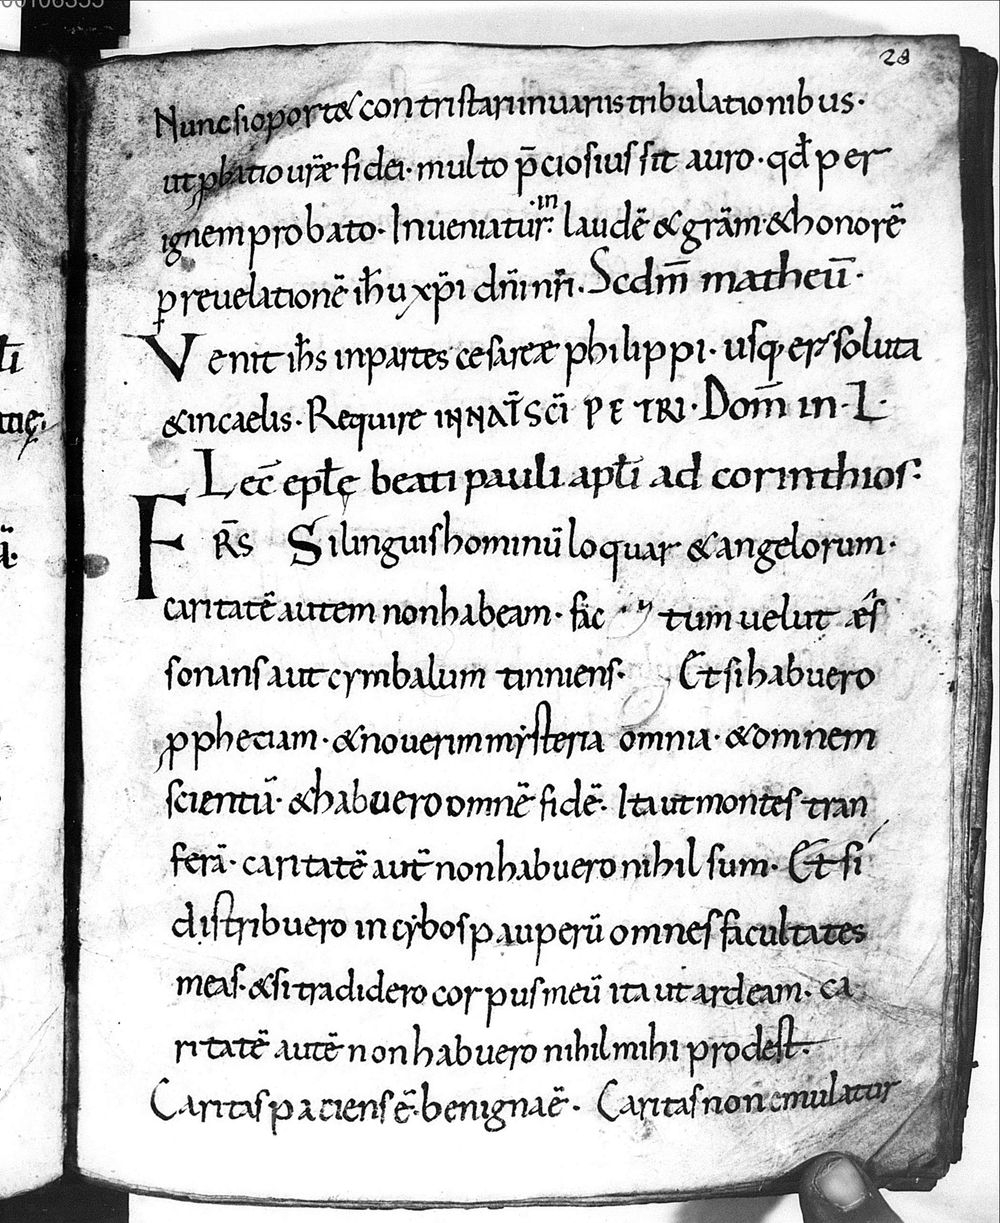 28
Nunc si oport& contristari inuariis tribulationibus·
ut ꝓbatio urǣ fidei· multo p̄ciosius sit auro· qd̄ per
ignem probato· Inueniatur· in laudē & grām· & honorē
p reuelationē ih̄u xp̄i dn̄i nr̄i. Scdm̄ matheū·
Venit ih̄s in partes cesareæ philippi· usq; er soluta
& in caelis· Require IN NAT̄ SC̄I PETRI· Dom̄ in· L·
Lec̄ epl̄ę beati pauli apl̄i ad corinthios:
FR̄S Si linguis hominū loquar & angelorum·
caritatē autem non habeam· fac tum uelut æs
sonans aut cymbalum tinniens· Et si habuero
ꝓphetiam· & nouerim mẏsteria omnia· & omnem
scientiā· & habuero omnē fidē· Ita ut montes tran
ferā· caritatē aut̄ non habuero nihil sum· Et si
distribuero in cẏbos pauperū omnes facultates
meas· & si tradidero corpus meū ita ut ardeam· ca
ritatē autē non habuero nihil mihi prodest·
Caritas paciens ē· benigna ē· Caritas non emulatur